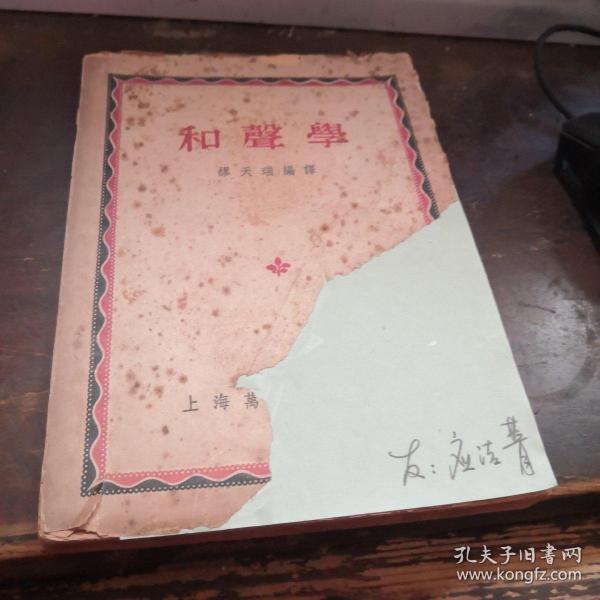 和聲學
繆天瑞編譯
上海萬
友：应洁菁
孔夫子旧書网
www.kongfz.com